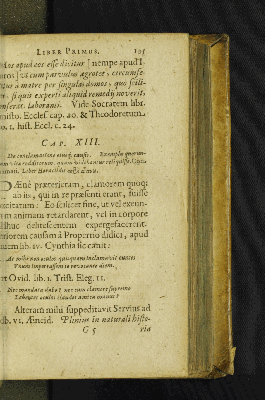 LIBER PRIMUS. 135
Mos apud eos esse dicitur [nempe apud I-
beros] ut cum parvulus ægrotet, circumfe-
atur à matre per singulas domos, quo scili-
si quis experti aliquid remedij noverit,
laboranti. Vide Socratem lib.
Eccles. cap. 20. & Theodoretum.
1. hist. Eccl. c. 24.
CAP. XIII.
De conclamatione causa. Exempla quorun-
redditorum. quam
Liber Heraclidæ
ænè præterieram, clamorem quoq;
ab iis, qui in præsenti erant, fuisse
excitatum? Eo scilicet fine, ut vel exeun-
em animam retardarent, vel in corpore
adhuc delitescentem expergefacerent.
causam à Propertio didici, apud
quem lib. IV. Cynthia sic canit:
At mihi non oculos quisquam inclamavit euntes
Unum impetrassem te revocante diem.
et Ovid. lib. I. Trist. Eleg. II.
Nec mandata dabo? nec cum clamore supremo
Labentes oculos claudet amica manus?
Alteram mihi suppeditavit Servius ad
lib. VI. Æneid. Plinius in naturali histo-
G 5 ria